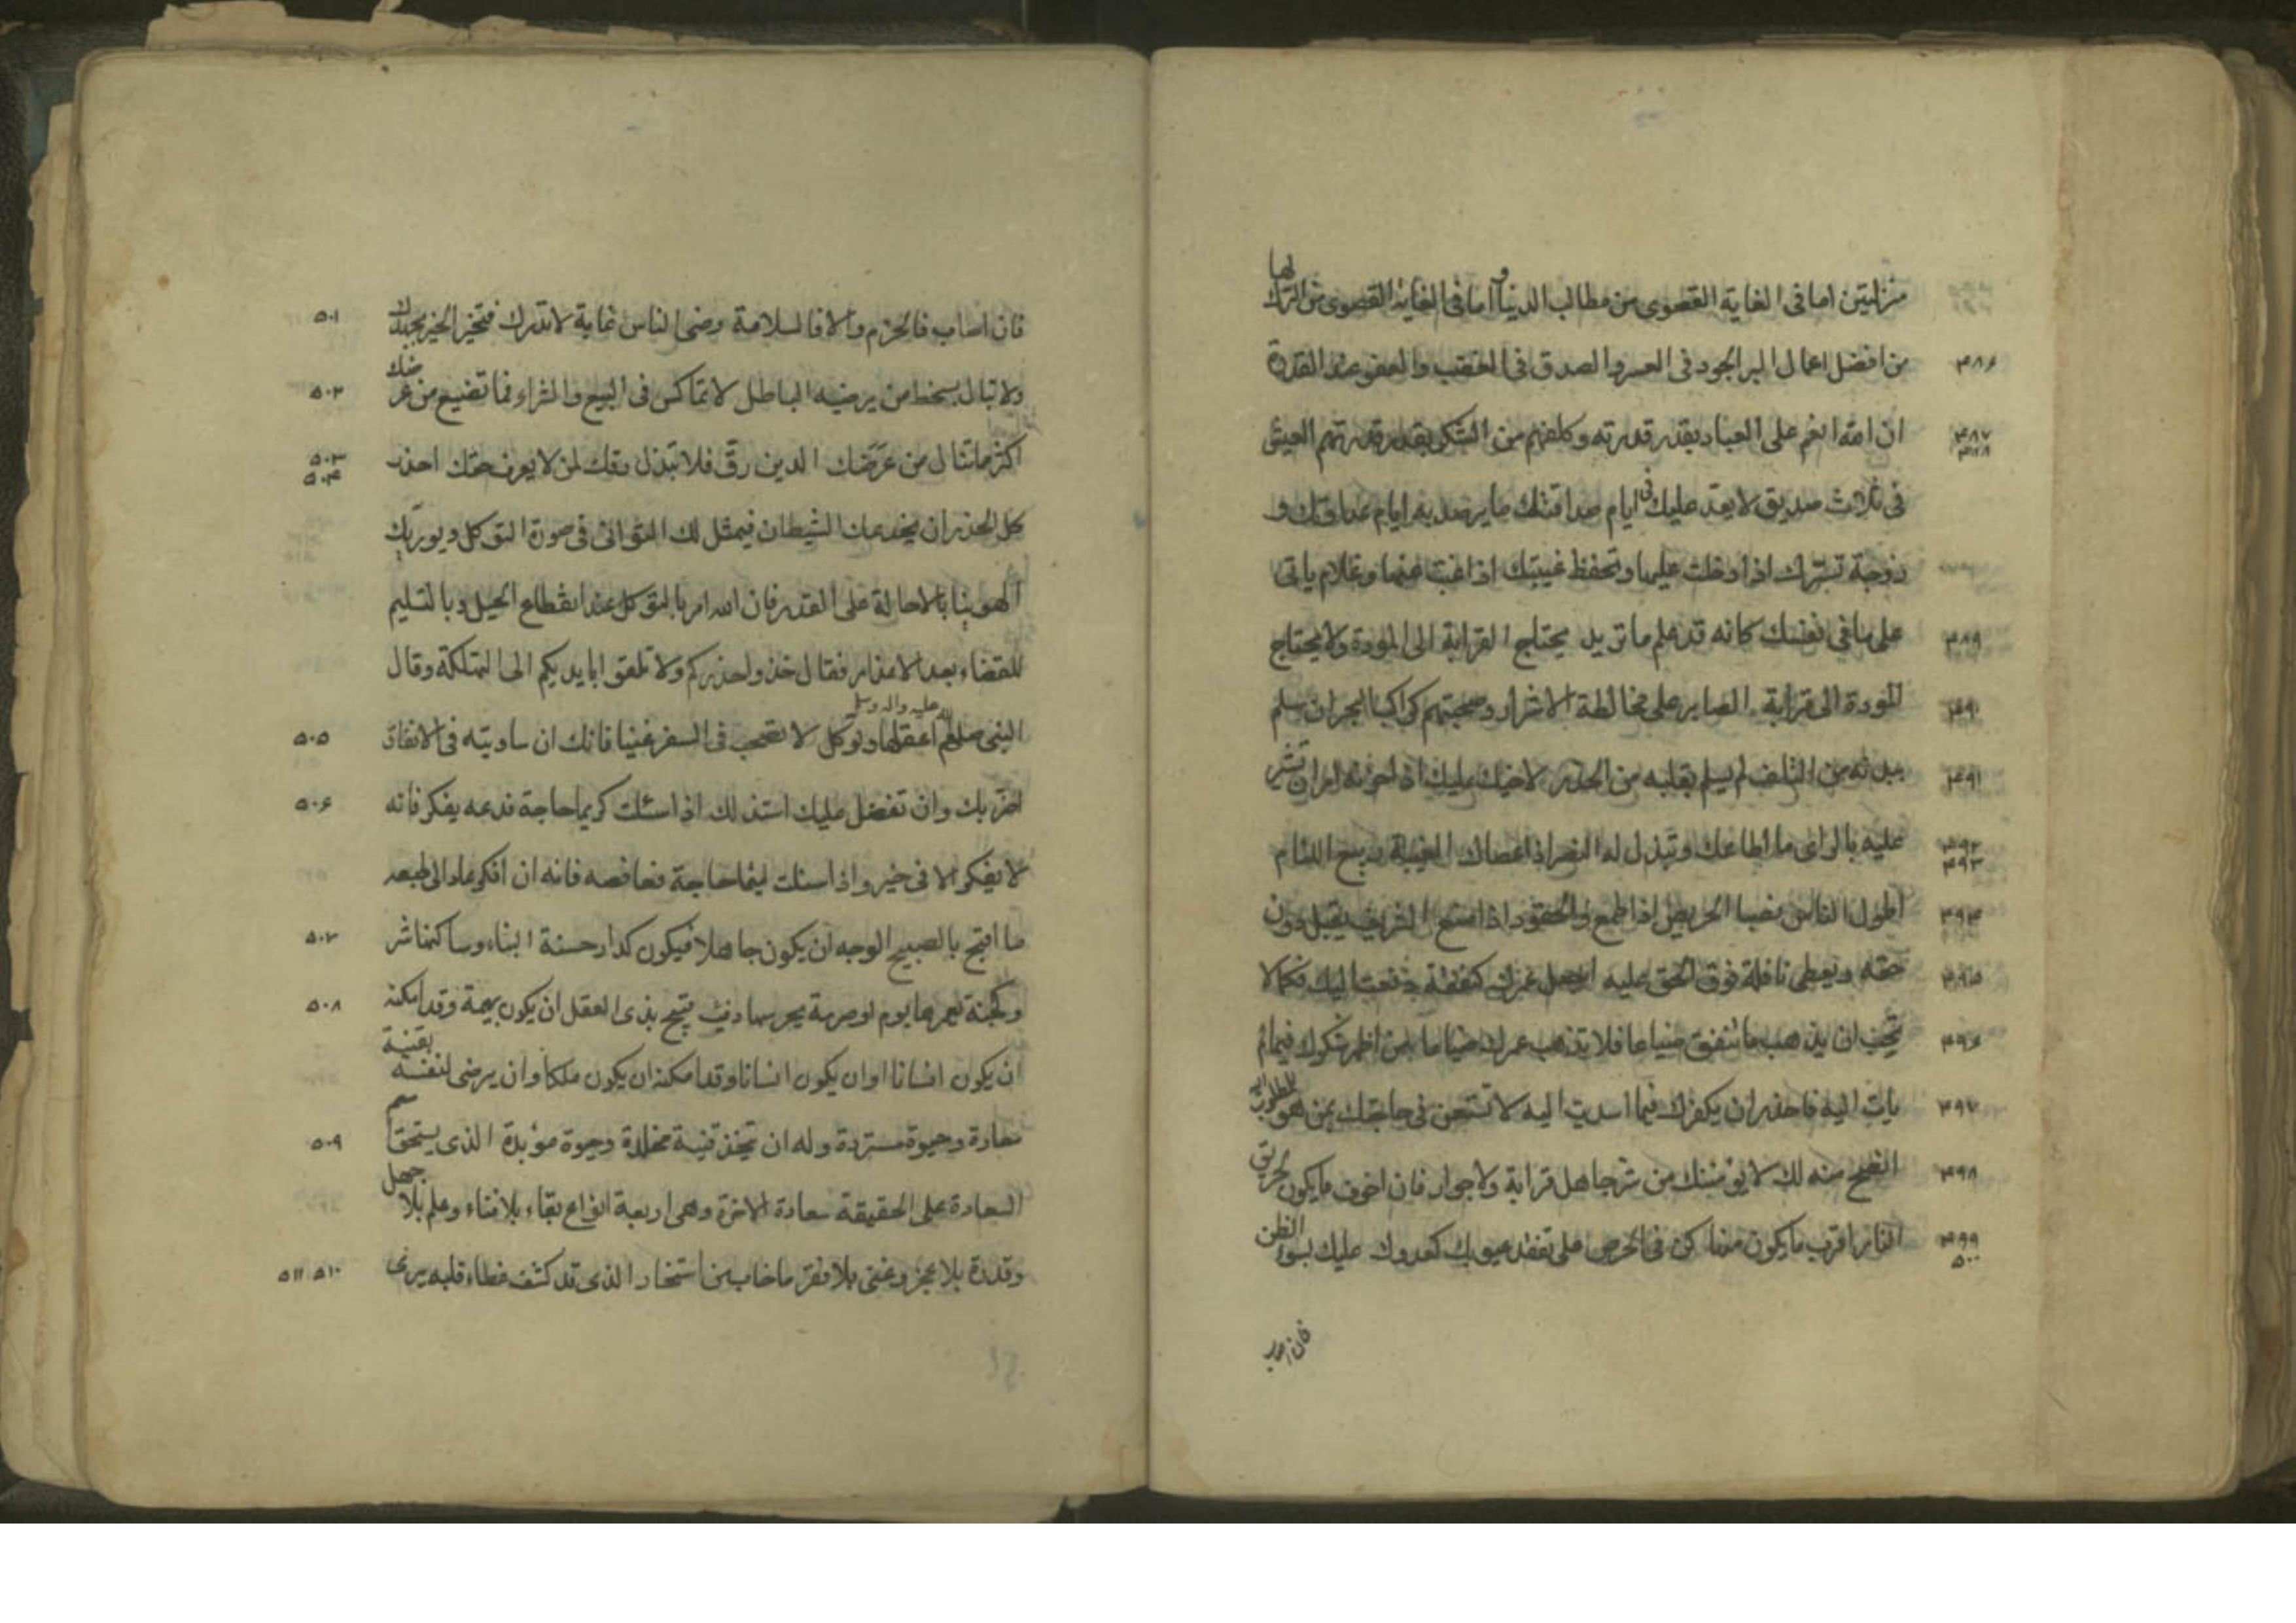 منزلتين اما فى الغاية القصوى من مطالب الدنيا و اما فى الغاية القصوى من الترك لها
۴۸۶ من افضل اعمال البر الجود فى العسر والصدق فى الغضب والعفو عند القدرة
۴۸۷ ۴۸۸ ان الله انعم على العباد بقدر قدرته وكلفهم من الشكر بقدر قدرتهم العيش
فى ثلاث صديق لا يعد عليك فى ايام صداقتك ما يرصد به ايام عداوتك و
زوجة تسرك اذا دخلت عليها وتحفظ غيبتك اذا غبت عنها وغلام ياتى
۴۸۹ على ما فى نفسك كانه قد علم ما تريد يحتاج القرابة الى المودة ولا يحتاج
۴۹۰ المودة الى قرابة الصابر على مخالطة الاشرار وصحبتهم كراكب البحر ان سلم
۴۹۱ ببدنه من التلف لم يسلم بقلبه من الحذر لاخيك عليك اذا حزنه امر ان تشر
۴۹۲ ۴۹۳ عليه بالراى ما اطاعك وتبذل له النصر اذا عصاك الغيبة ربيع اللئام
۴۹۴ اطول الناس نصبا الحريص اذا طمع والحقود اذا منع الشريف يقبل دون
۴۹۵ حقه ويعطى نافلة فوق الحق عليه اجعل عمرك كنفقة دفعت اليك فكما لا
۴۹۶ تحب ان يذهب ما تنفق ضياعا فلا تذهب عمرك ضياعا من اظهر شكرك فيما لم
۴۹۷ يات اليه فاحذر ان يكفرك فيما اسديت اليه لا تستعن فى حاجتك بمن هو للمطلوب اليه
۴۹۸ انصح منه لك لا يؤمننك من شر جاهل قرابة ولا جوار فان اخوف ما يكون لحريق
۴۹۹ ۵۰۰ النار اقرب ما يكون منها كن فى الحرص على تفقد عيوبك كعدوك عليك بسوء الظن
فان اصاب
۵۰۱ فان اصاب فالحزم والا فالسلامة رضى الناس غاية لا تدرك فتخير الخير بجهدك
۵۰۲ ولا تبال بسخط من يرضيه الباطل لا تماكس فى البيع والشراء فما تضيع من عرضك
۵۰۳ ۵۰۴ اكثر مما تنال من عرضك الدين رق فلا تبذل رقك لمن لا يعرف حقك احذر
كل الحذر ان يخدعك الشيطان فيمثل لك التوانى فى صورة التوكل ويورثك
الهوينا بالاحالة على القدر فان الله امر بالتوكل عند انقطاع الحيل وبالتسليم
للقضاء بعد الاعذار فقال خذوا حذركم ولا تلقوا بايديكم الى التهلكة وقال
۵۰۵ النبى صلى الله عليه واله وسلم اعقلها وتوكل لا تصحب فى السفر غنيا فانك ان ساويته فى الانفاق
۵۰۶ اضر بك وان تفضل عليك استذلك اذا سئلت كريما حاجة فدعه يفكر فانه
لا يفكر الا فى خير واذا سئلت لئيما حاجة فعافصه فانه ان افكر عاد الى طبعه
۵۰۷ ما اقبح بالصبيح الوجه ان يكون جاهلا فيكون كدار حسنة البناء وساكنها شر
۵۰۸ وكجنة يعمرها بوم او صرمة يحرسها ذئب قبيح بذى العقل ان يكون بهيمة وقد امكنه
ان يكون انسانا او ان يكون انسانا وقد امكنه ان يكون ملكا وان يرضى لنفسه بقنية
۵۰۹ معارة وحيوة مستردة وله ان يتخذ قنية مخلدة وحيوة مؤبدة الذى يستحق اسم
السعادة على الحقيقة سعادة الاخرة وهى اربعة انواع بقاء بلا فناء وعلم بلا جهل
۵۱۰ ۵۱۱ وقدرة بلا عجز وغنى بلا فقر ما خاب من استخار الذى قد كشف غطاء قلبه يرى